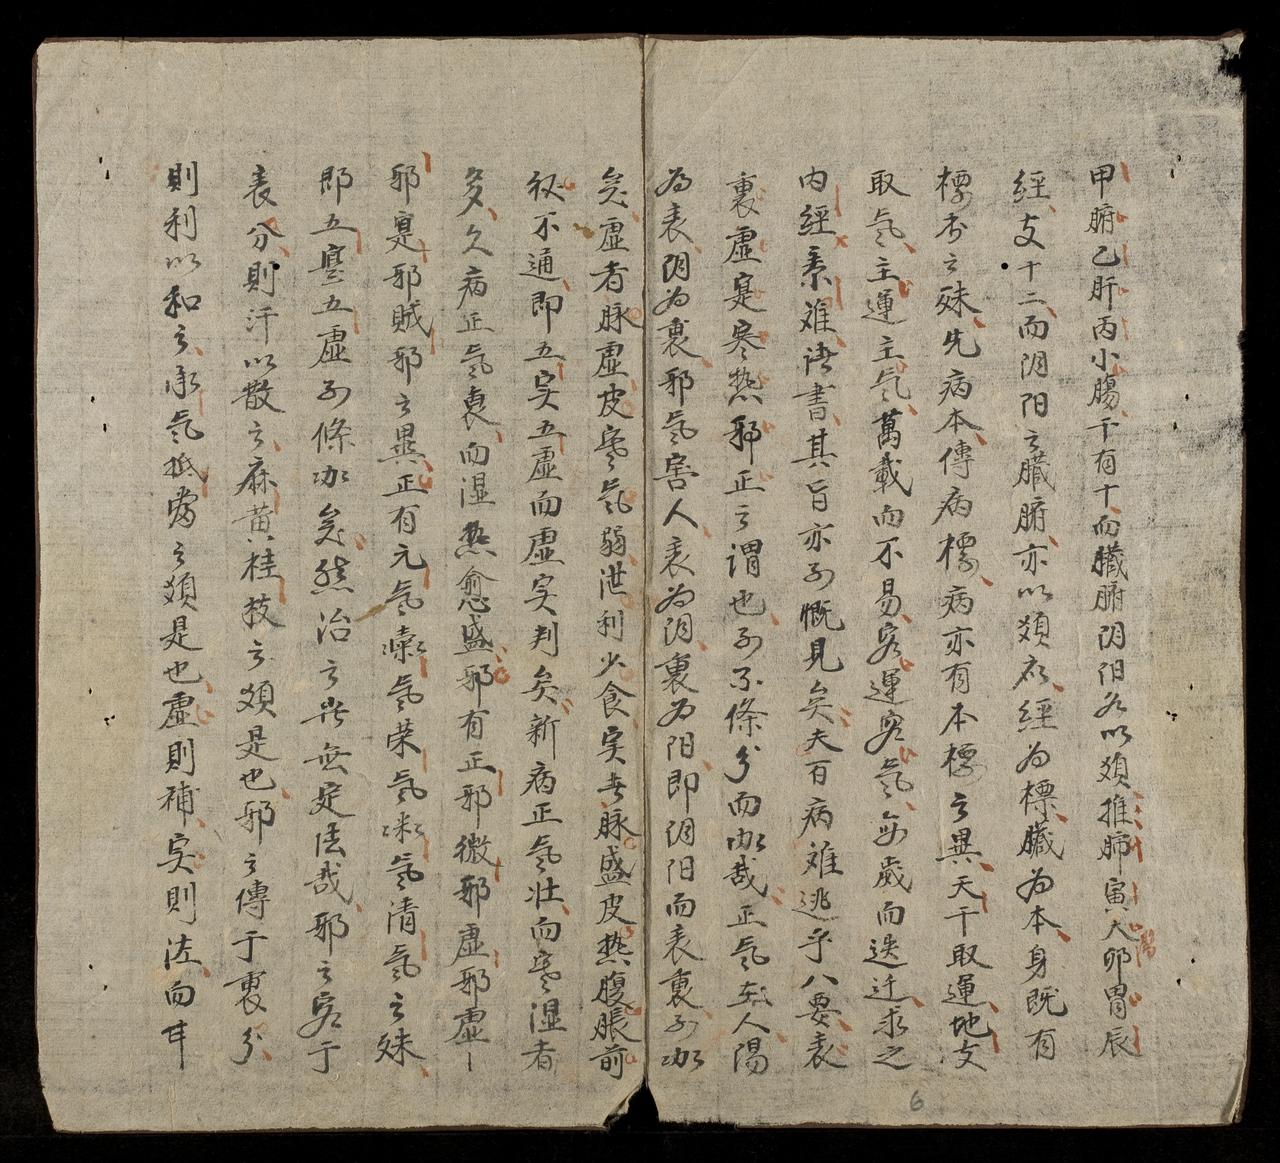 甲腑乙肝丙小腸干有十而臟腑阴阳各以類推肺寅大腸卯胃辰
經支十二而阴阳之臟腑亦以類衣經为標臟为本身既有
標本之殊先病本傳病標病亦有本標之異天干取運地支
取氣主運主氣萬載而不易客運客氣每歲而迭迁求之
内經素难諸書其旨亦可慨見矣夫百病难逃乎八要表
裏虛寔寒热邪正之謂也可不條分而加哉正氣在人陽
为表阴为裏邪氣害人表为阴裏为阳即阴阳而表裏可加
矣虛者脉虛皮寒氣弱泄利少食实者脉盛皮热腹脹前
後不通即五实五虛而虛实判矣新病正氣壮而寒湿者
多久病正氣衰而湿热愈盛邪有正邪微邪虛邪虛丨
邪寔邪賊邪之異正有元氣嗉氣荣氣冰氣清氣之殊
即五寔五虛可條加矣然治之岂無定法哉邪之客于
表分則汗以散之麻黄桂枝之類是也邪之傳于裏分
則利以和之承氣抵當之類是也虛則補实則泻而甘
6